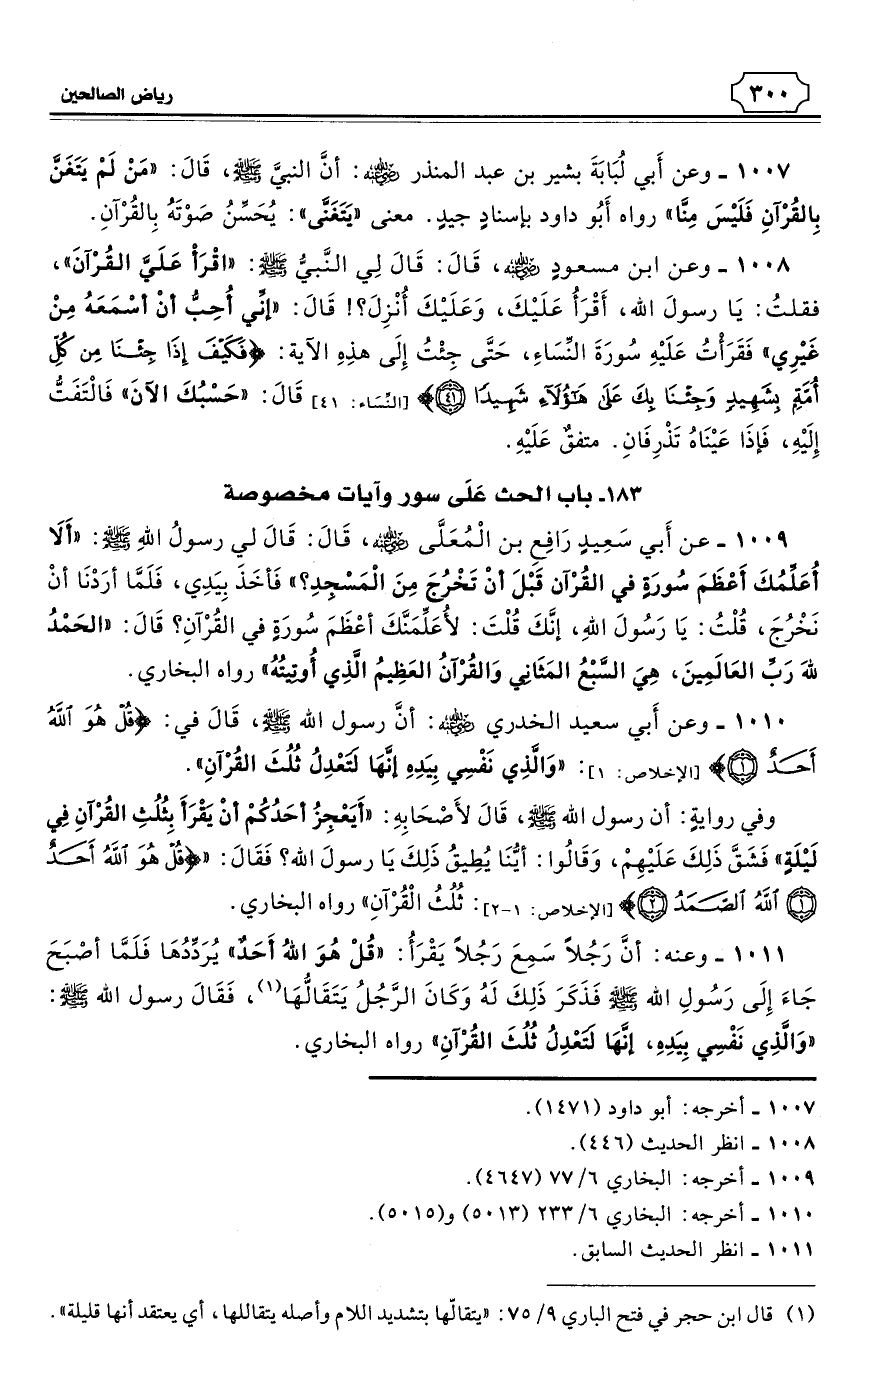 ٣٠٠
رياض الصالحين
١٠٠٧ ـ وعن أَبي لُبَابَةَ بشير بن عبد المنذر ﵁: أنَّ النبيَّ ﷺ، قَالَ: «مَنْ لَمْ يَتَغَنَّ
بِالقُرْآنِ فَلَيْسَ مِنَّا» رواه أَبُو داود بإسنادٍ جيدٍ. معنى «يَتَغَنَّى»: يُحَسِّنُ صَوْتَهُ بِالقُرْآنِ.
١٠٠٨ ـ وعن ابن مسعودٍ ﵁، قَالَ: قَالَ لِي النَّبيُّ ﷺ: «اقْرَأْ عَلَيَّ القُرْآنَ»،
فقلتُ: يَا رسولَ الله، أَقْرَأُ عَلَيْكَ، وَعَلَيْكَ أُنْزِلَ؟! قَالَ: «إِنِّي أُحِبُّ أنْ أسْمَعَهُ مِنْ
غَيْرِي» فَقَرَأْتُ عَلَيْهِ سُورَةَ النِّسَاءِ، حَتَّى جِئْتُ إِلَى هذِهِ الآية: ﴿فَكَيْفَ إِذَا جِئْنَا مِن كُلِّ
أُمَّةٍ بِشَهِيدٍ وَجِئْنَا بِكَ عَلَىٰ هَٰٓؤُلَآءِ شَهِيدًا ٤١﴾ [النِّسَاء: ٤١] قَالَ: «حَسْبُكَ الآنَ» فَالْتَفَتُّ
إِلَيْهِ، فَإذَا عَيْنَاهُ تَذْرِفَانِ. متفقٌ عَلَيْهِ.
١٨٣ـ باب الحث عَلَى سور وآيات مخصوصة
١٠٠٩ ـ عن أَبي سَعِيدٍ رَافِعِ بن الْمُعَلَّى ﵁، قَالَ: قَالَ لي رسولُ اللهِ ﷺ: «أَلَا
أُعَلِّمُكَ أَعْظَمَ سُورَةٍ في القُرْآن قَبْلَ أنْ تَخْرُجَ مِنَ الْمَسْجِدِ؟» فَأخَذَ بِيَدِي، فَلَمَّا أرَدْنَا أنْ
نَخْرُجَ، قُلْتُ: يَا رَسُولَ اللهِ، إنَّكَ قُلْتَ: لأُعَلِّمَنَّكَ أعْظَمَ سُورَةٍ في القُرْآنِ؟ قَالَ: «الحَمْدُ
للهِ رَبِّ العَالَمِينَ، هِيَ السَّبْعُ المَثَانِي وَالقُرْآنُ العَظِيمُ الَّذِي أُوتِيتُهُ» رواه البخاري.
١٠١٠ ـ وعن أَبي سعيد الخدري ﵁: أنَّ رسول الله ﷺ، قَالَ في: ﴿قُلْ هُوَ ٱللَّهُ
أَحَدٌ ١﴾ [الإخلاص: ١]: «وَالَّذِي نَفْسِي بِيَدِهِ إنَّهَا لَتَعْدِلُ ثُلُثَ القُرْآنِ».
وفي روايةٍ: أن رسول الله ﷺ، قَالَ لأَصْحَابِهِ: «أَيَعْجِزُ أحَدُكُمْ أنْ يَقْرَأَ بِثُلُثِ القُرْآنِ فِي
لَيْلَةٍ» فَشَقَّ ذَلِكَ عَلَيْهِمْ، وَقَالُوا: أيُّنَا يُطِيقُ ذَلِكَ يَا رسولَ الله؟ فَقَالَ: «﴿قُلْ هُوَ ٱللَّهُ أَحَدٌ
١ ٱللَّهُ ٱلصَّمَدُ ٢﴾ [الإخلاص: ١-٢]: ثُلُثُ الْقُرْآنِ» رواه البخاري.
١٠١١ ـ وعنه: أنَّ رَجُلاً سَمِعَ رَجُلاً يَقْرَأُ: «قُلْ هُوَ اللهُ أَحَدٌ» يُرَدِّدُهَا فَلَمَّا أصْبَحَ
جَاءَ إِلَى رَسُولِ الله ﷺ فَذَكَرَ ذَلِكَ لَهُ وَكَانَ الرَّجُلُ يَتَقَالُّهَا(١)، فَقَالَ رسول الله ﷺ:
«وَالَّذِي نَفْسِي بِيَدِهِ، إنَّهَا لَتَعْدِلُ ثُلُثَ القُرْآنِ» رواه البخاري.
١٠٠٧ ـ أخرجه: أبو داود (١٤٧١).
١٠٠٨ ـ انظر الحديث (٤٤٦).
١٠٠٩ ـ أخرجه: البخاري ٦/ ٧٧ (٤٦٤٧).
١٠١٠ ـ أخرجه: البخاري ٦/ ٢٣٣ (٥٠١٣) و(٥٠١٥).
١٠١١ ـ انظر الحديث السابق.
(١) قال ابن حجر في فتح الباري ٩/ ٧٥: «يتقالّها بتشديد اللام وأصله يتقاللها، أي يعتقد أنها قليلة».